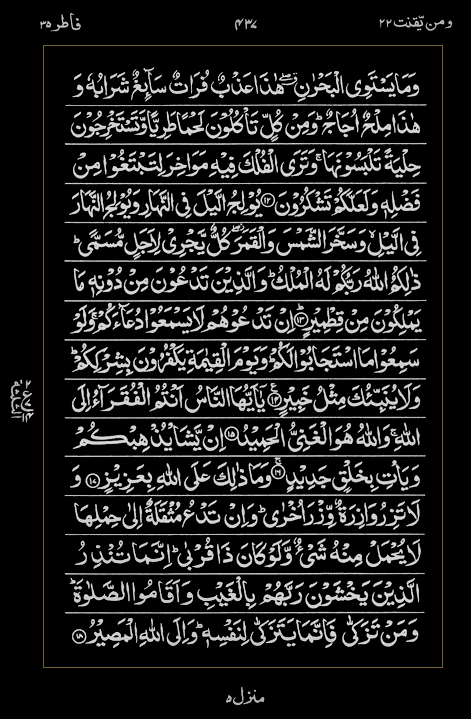 ومن يّقنت ٢٢ ٤٣٧ فاطر ٣٥
وَمَا يَسْتَوِى الْبَحْرٰنِ ۖ هٰذَا عَذْبٌ فُرَاتٌ سَآئِغٌ شَرَابُهٗ وَ
هٰذَا مِلْحٌ اُجَاجٌ ؕ وَمِنْ كُلٍّ تَاْكُلُوْنَ لَحْمًا طَرِيًّا وَّتَسْتَخْرِجُوْنَ
حِلْيَةً تَلْبَسُوْنَهَا ۚ وَتَرَى الْفُلْكَ فِيْهِ مَوَاخِرَ لِتَبْتَغُوْا مِنْ
فَضْلِهٖ وَلَعَلَّكُمْ تَشْكُرُوْنَ ﴿۱۲﴾ يُوْلِجُ الَّيْلَ فِى النَّهَارِ وَيُوْلِجُ النَّهَارَ
فِى الَّيْلِ ۙ وَسَخَّرَ الشَّمْسَ وَالْقَمَرَ ۖ كُلٌّ يَّجْرِىْ لِاَجَلٍ مُّسَمًّى ؕ
ذٰلِكُمُ اللّٰهُ رَبُّكُمْ لَهُ الْمُلْكُ ؕ وَالَّذِيْنَ تَدْعُوْنَ مِنْ دُوْنِهٖ مَا
يَمْلِكُوْنَ مِنْ قِطْمِيْرٍ ؕ﴿۱۳﴾ اِنْ تَدْعُوْهُمْ لَا يَسْمَعُوْا دُعَآءَكُمْ ۚ وَلَوْ
سَمِعُوْا مَا اسْتَجَابُوْا لَكُمْ ؕ وَيَوْمَ الْقِيٰمَةِ يَكْفُرُوْنَ بِشِرْكِكُمْ ؕ
وَلَا يُنَبِّئُكَ مِثْلُ خَبِيْرٍ ﴿۱۴﴾ يٰۤاَيُّهَا النَّاسُ اَنْتُمُ الْفُقَرَآءُ اِلَى
اللّٰهِ ۚ وَاللّٰهُ هُوَ الْغَنِىُّ الْحَمِيْدُ ﴿۱۵﴾ اِنْ يَّشَاْ يُذْهِبْكُمْ
وَيَاْتِ بِخَلْقٍ جَدِيْدٍ ۚ﴿۱۶﴾ وَمَا ذٰلِكَ عَلَى اللّٰهِ بِعَزِيْزٍ ﴿۱۷﴾ وَ
لَا تَزِرُ وَازِرَةٌ وِّزْرَ اُخْرٰى ؕ وَاِنْ تَدْعُ مُثْقَلَةٌ اِلٰى حِمْلِهَا
لَا يُحْمَلْ مِنْهُ شَىْءٌ وَّلَوْ كَانَ ذَا قُرْبٰى ؕ اِنَّمَا تُنْذِرُ
الَّذِيْنَ يَخْشَوْنَ رَبَّهُمْ بِالْغَيْبِ وَاَقَامُوا الصَّلٰوةَ ؕ
وَمَنْ تَزَكّٰى فَاِنَّمَا يَتَزَكّٰى لِنَفْسِهٖ ؕ وَاِلَى اللّٰهِ الْمَصِيْرُ ﴿۱۸﴾
منزل ٥